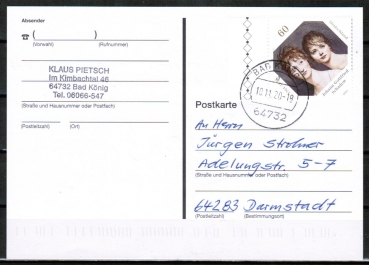 Absender
☎ ( )
(Vorwahl) (Rufnummer)
KLAUS PIETSCH
Im Kimbachtal 46
64732 Bad König
Tel. 06066-547
(Straße und Hausnummer oder Postfach)
(Postleitzahl) (Ort)
60
BAD
10.11.20-18
64732
Postkarte
An Herrn
Jürgen Strohner
Adelungstr. 5-7
(Straße und Hausnummer oder Postfach)
64283 Darmstadt
(Postleitzahl) (Bestimmungsort)